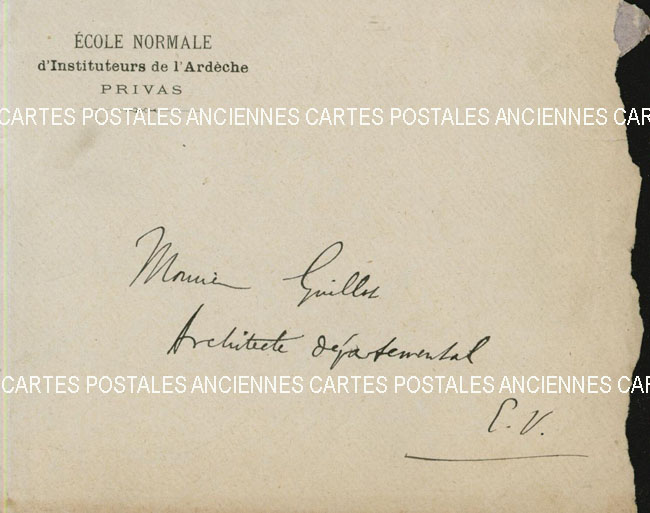 ÉCOLE NORMALE
d'Instituteurs de l'Ardèche
PRIVAS
CARTES POSTALES ANCIENNES CARTES POSTALES ANCIENNES CAR
Monsieur Guillot
Architecte départemental
CARTES POSTALES ANCIENNES CARTES POSTALES ANCIENNES CAR
E. V.